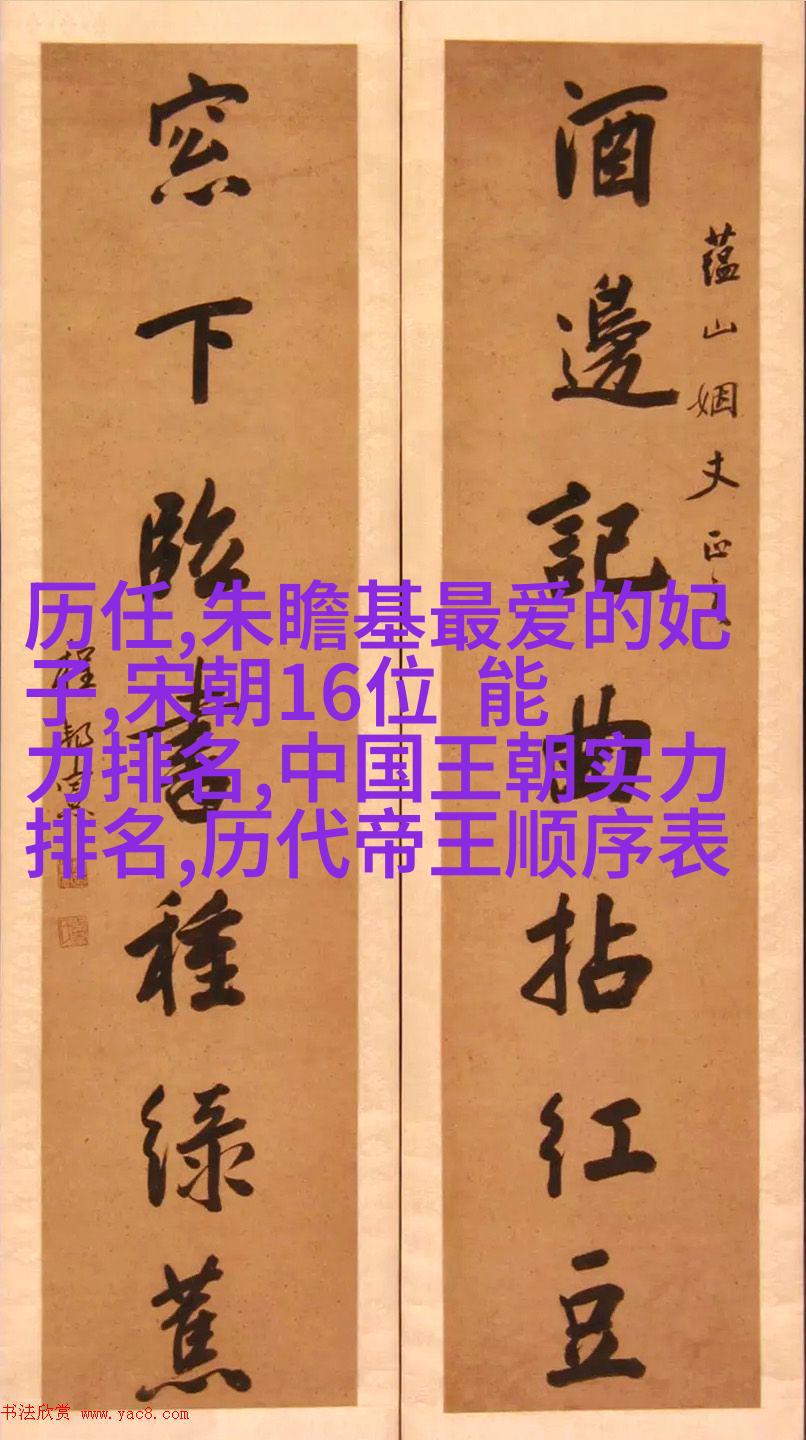 酒邊記曲拈紅豆
蕴山姻丈正之
窓下臨書種緑蕉
程邦憲
历任,朱瞻基最爱的妃
子,宋朝16位 能
力排名,中国王朝实力
排名,历代帝王顺序表
书法欣赏 www.yac8.com